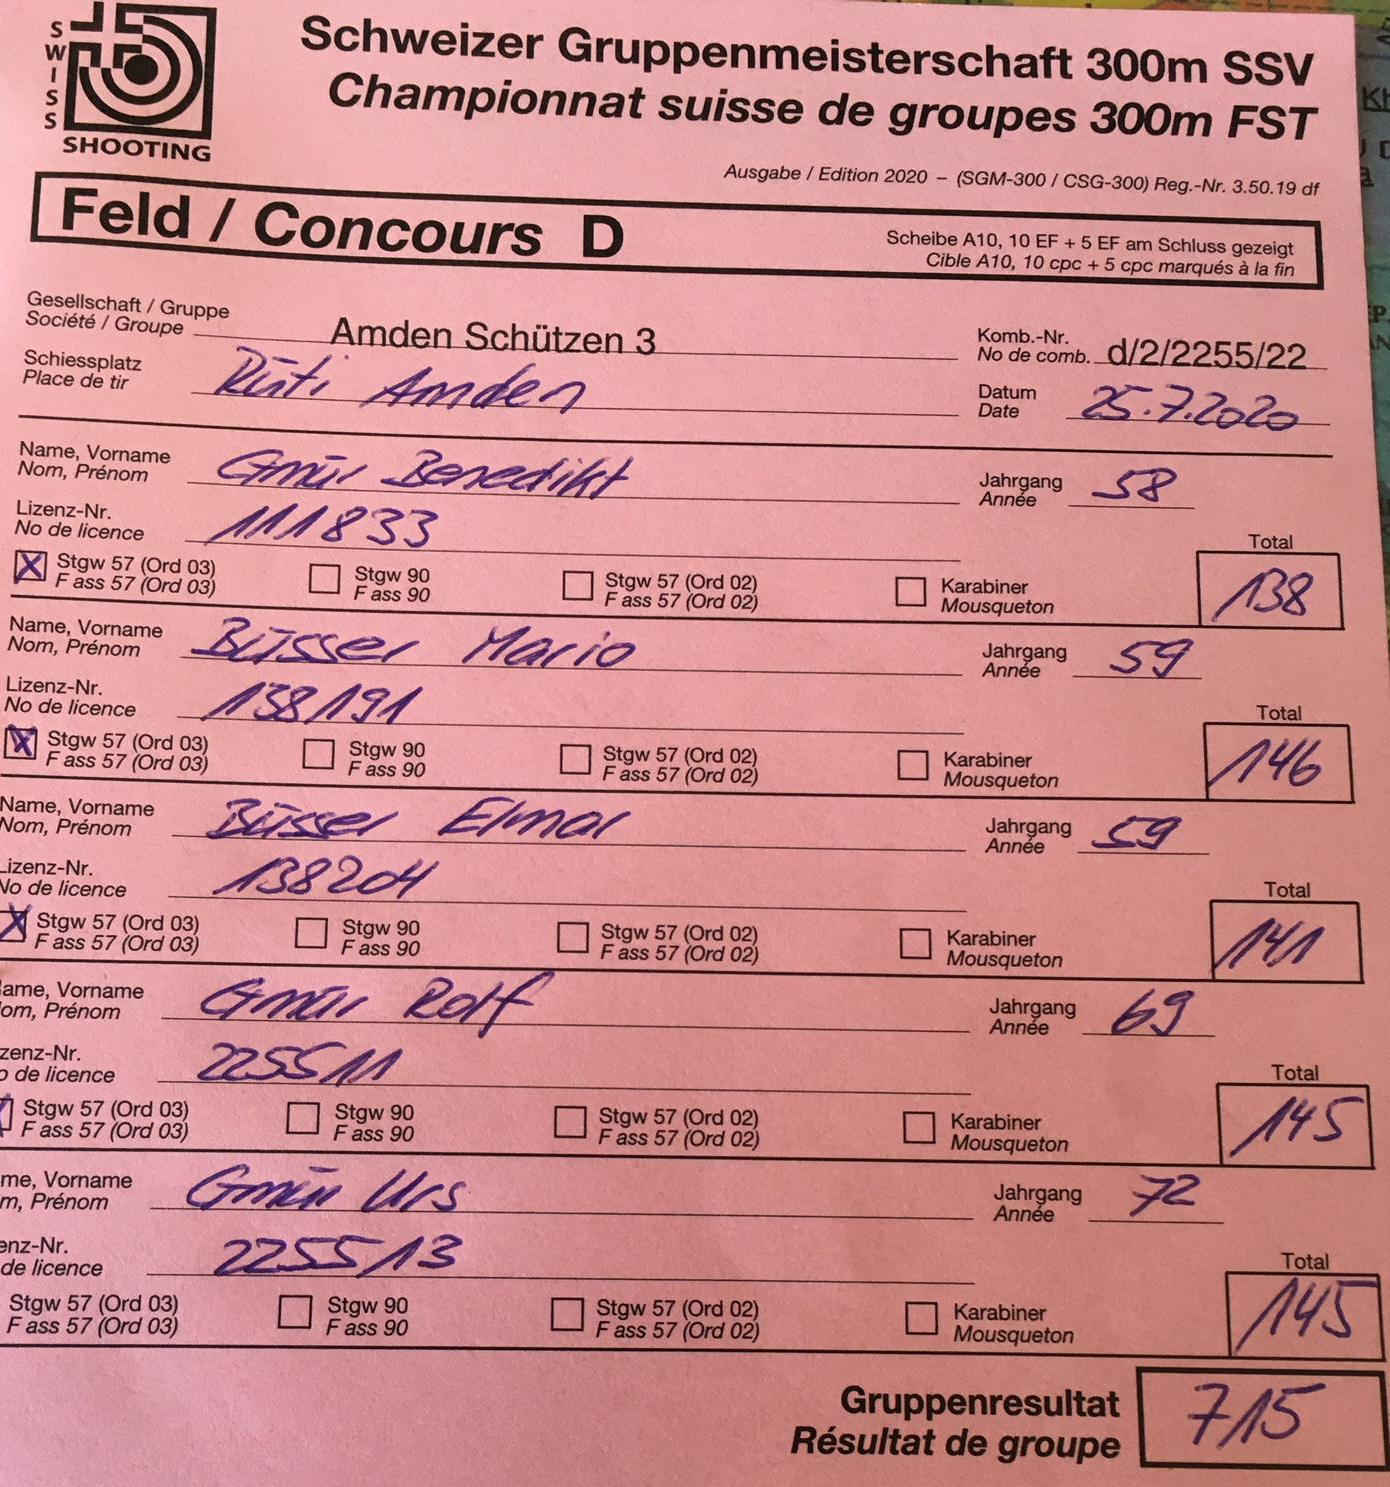 SWISS
SHOOTING
Schweizer Gruppenmeisterschaft 300m SSV
Championnat suisse de groupes 300m FST
Ausgabe / Edition 2020 – (SGM-300 / CSG-300) Reg.-Nr. 3.50.19 df
Feld / Concours D
Scheibe A10, 10 EF + 5 EF am Schluss gezeigt
Cible A10, 10 cpc + 5 cpc marqués à la fin
Gesellschaft / Gruppe
Société / Groupe
Amden Schützen 3
Komb.-Nr.
No de comb. d/2/2255/22
Schiessplatz
Place de tir
Rüti Amden
Datum
Date
25.7.2020
Name, Vorname
Nom, Prénom
Gmür Benedikt
Jahrgang
Année
58
Lizenz-Nr.
No de licence
111833
Total
X Stgw 57 (Ord 03) Stgw 90 Stgw 57 (Ord 02) Karabiner
F ass 57 (Ord 03) F ass 90 F ass 57 (Ord 02) Mousqueton
138
Name, Vorname
Nom, Prénom
Büsser Mario
Jahrgang
Année
59
Lizenz-Nr.
No de licence
138191
Total
X Stgw 57 (Ord 03) Stgw 90 Stgw 57 (Ord 02) Karabiner
F ass 57 (Ord 03) F ass 90 F ass 57 (Ord 02) Mousqueton
146
Name, Vorname
Nom, Prénom
Büsser Elmar
Jahrgang
Année
59
Lizenz-Nr.
No de licence
138204
Total
X Stgw 57 (Ord 03) Stgw 90 Stgw 57 (Ord 02) Karabiner
F ass 57 (Ord 03) F ass 90 F ass 57 (Ord 02) Mousqueton
141
ame, Vorname
om, Prénom
Gmür Rolf
Jahrgang
Année
69
zenz-Nr.
o de licence
225511
Total
Stgw 57 (Ord 03) Stgw 90 Stgw 57 (Ord 02) Karabiner
F ass 57 (Ord 03) F ass 90 F ass 57 (Ord 02) Mousqueton
145
me, Vorname
m, Prénom
Gmür Urs
Jahrgang
Année
72
enz-Nr.
de licence
225513
Total
Stgw 57 (Ord 03) Stgw 90 Stgw 57 (Ord 02) Karabiner
F ass 57 (Ord 03) F ass 90 F ass 57 (Ord 02) Mousqueton
145
Gruppenresultat
Résultat de groupe
715